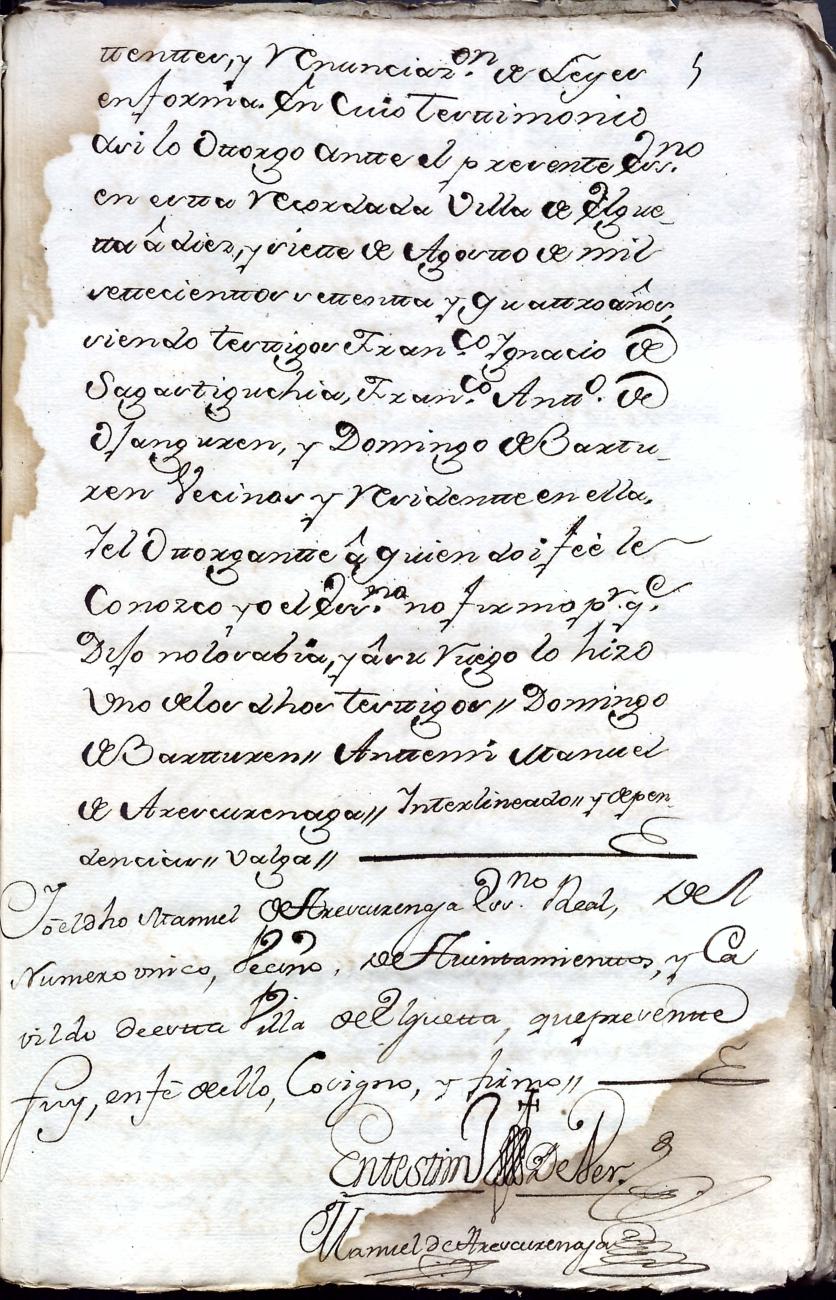 ttenttes, y Renunciaz.on de Leyes 5
en forma. En Cuio Testimonio
asi lo Otorgo antte el presente Ess.no
en estta Recordada Villa de Elgue_
tta â diez, y siette de Agosto de mil
settecienttos settentta y quattro años,
siendo testtigos Fran.co Ygnacio de
Sagastiguchia, Fran.co Antt.o de
Osanguren, y Domingo de Barttu_
ren Vecinos y Residentte en ella.
Yel Otorgantte â quien doi feè le
Conozco yo el Ess.no no firmo p.r q.e
Dijo no lo savia, y â su Ruego lo hizo
Uno de los dhos testtigos // Domingo
de Bartturen // Anttemi Manuel
de Arescurenaga // Interlineado // y depen_
dencias // Valga //
Yo el dho Manuel de Arescurenaga Ess.no Real, del
Numero unico, Vecino, de Aiuntamienttos, y Ca
vildo de estta Villa de Elguetta, que presentte
fuy, en fè de ello, Lo signo, y firmo //
En testim.o De Ver.
Manuel de Arescurenaga